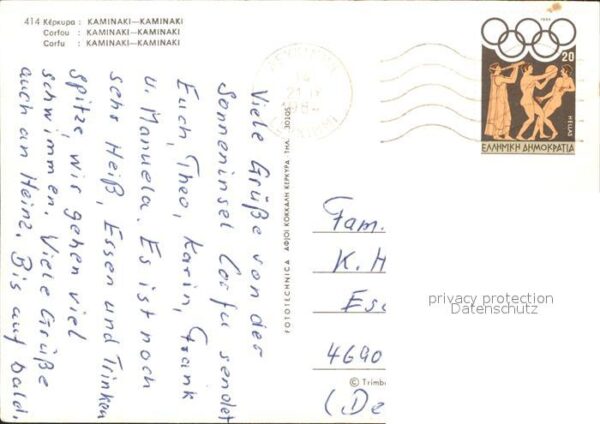 414 Κέρκυρα : KAMINAKI—KAMINAKI
Corfou : KAMINAKI—KAMINAKI
Corfu : KAMINAKI—KAMINAKI
Viele Grüße von der
Sonneninsel Corfu sendet
Euch, Theo, Karin, Frank
u. Manuela. Es ist noch
sehr Heiß, Essen und Trinken
Spitze, wir gehen viel
schwimmen. Viele Grüße
auch an Heinz. Bis auf bald.
FOTOTECHNICA ΑΦΙΟΙ ΚΟΚΚΑΛΗ ΚΕΡΚΥΡΑ ΤΗΛ. 30205
1984
20
HELLAS
ΕΛΛΗΝΙΚΗ ΔΗΜΟΚΡΑΤΙΑ
Fam.
K. H
Es
4690
(De
privacy protection
Datenschutz
© Trimb